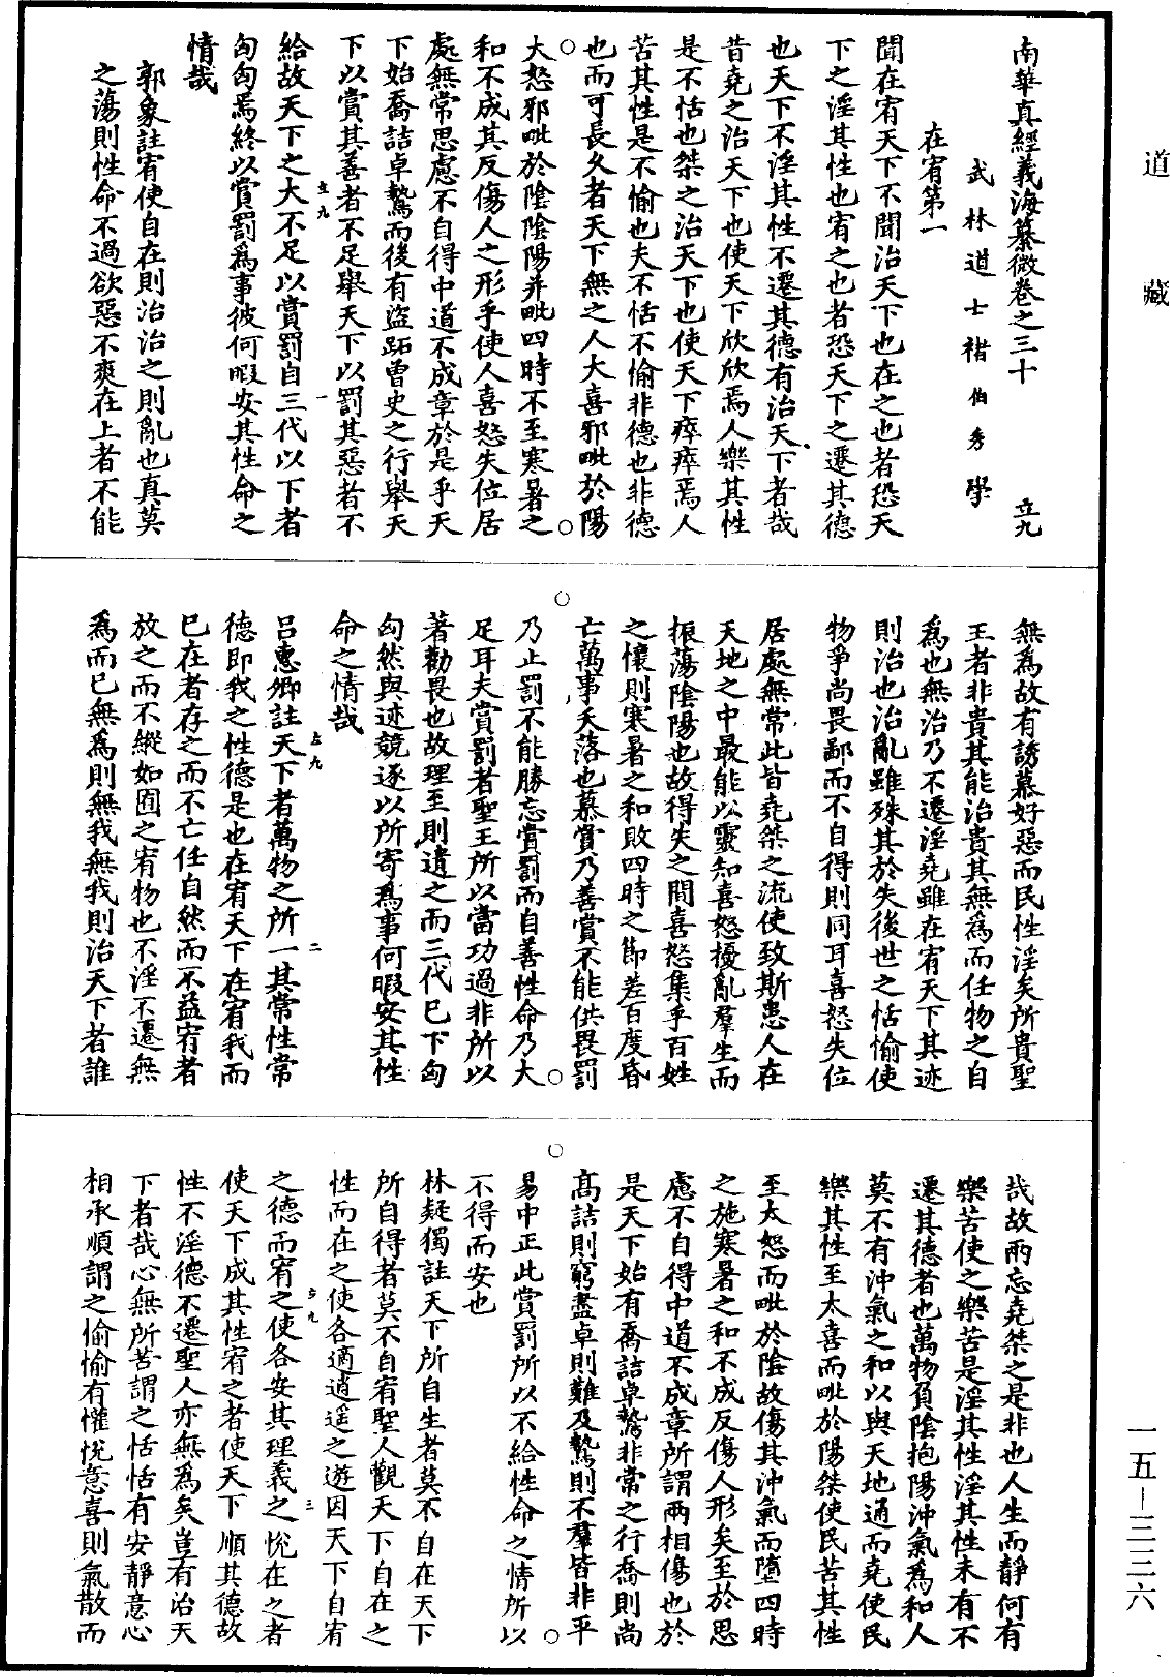 道藏
南華真經義海纂微卷之三十 立九
武林道士褚伯秀學
在宥第一
聞在宥天下不聞治天下也在之也者恐天
下之淫其性也宥之也者恐天下之遷其德
也天下不淫其性不遷其德有治天下者哉
昔堯之治天下也使天下欣欣焉人樂其性
是不恬也桀之治天下也使天下瘁瘁焉人
苦其性是不愉也夫不恬不愉非德也非德
也而可長久者天下無之人大喜邪毗於陽
大怒邪毗於陰陰陽并毗四時不至寒暑之
和不成其反傷人之形乎使人喜怒失位居
處無常思慮不自得中道不成章於是乎天
下始喬詰卓鷙而後有盜跖曾史之行舉天
下以賞其善者不足舉天下以罰其惡者不
立九 一
給故天下之大不足以賞罰自三代以下者
匈匈焉終以賞罰爲事彼何暇安其性命之
情哉
郭象註宥使自在則治治之則亂也真莫
之蕩則性命不過欲惡不爽在上者不能
無爲故有誘慕好惡而民性淫矣所貴聖
王者非貴其能治貴其無爲而任物之自
爲也無治乃不遷淫堯雖在宥天下其迹
則治也治亂雖殊其於失後世之恬愉使
物爭尚畏鄙而不自得則同耳喜怒失位
居處無常此皆堯桀之流使致斯患人在
天地之中最能以靈知喜怒擾亂羣生而
振蕩陰陽也故得失之間喜怒集乎百姓
之懷則寒暑之和敗四時之節差百度昏
亡萬事夭落也慕賞乃善賞不能供畏罰
乃止罰不能勝忘賞罰而自善性命乃大
足耳夫賞罰者聖王所以當功過非所以
著勸畏也故理至則遺之而三代已下匈
匈然與迹競逐以所寄爲事何暇安其性
命之情哉
立九 二
呂惠卿註天下者萬物之所一其常性常
德即我之性德是也在宥天下在宥我而
已在者存之而不亡任自然而不益宥者
放之而不縱如囿之宥物也不淫不遷無
爲而已無爲則無我無我則治天下者誰
哉故兩忘堯桀之是非也人生而靜何有
樂苦使之樂苦是淫其性淫其性未有不
遷其德者也萬物負陰抱陽沖氣爲和人
莫不有沖氣之和以與天地通而堯使民
樂其性至太喜而毗於陽桀使民苦其性
至太怒而毗於陰故傷其沖氣而墮四時
之施寒暑之和不成反傷人形矣至於思
慮不自得中道不成章所謂兩相傷也於
是天下始有喬詰卓鷙非常之行喬則尚
高詰則窮盡卓則難及鷙則不羣皆非平
易中正此賞罰所以不給性命之情所以
不得而安也
林疑獨註天下所自生者莫不自在天下
所自得者莫不自宥聖人觀天下自在之
性而在之使各適逍遙之遊因天下自宥
立九 三
之德而宥之使各安其理義之悅在之者
使天下成其性宥之者使天下順其德故
性不淫德不遷聖人亦無爲矣豈有治天
下者哉心無所苦謂之恬恬有安靜意心
相承順謂之愉愉有懽悅意喜則氣散而
一五—三三六